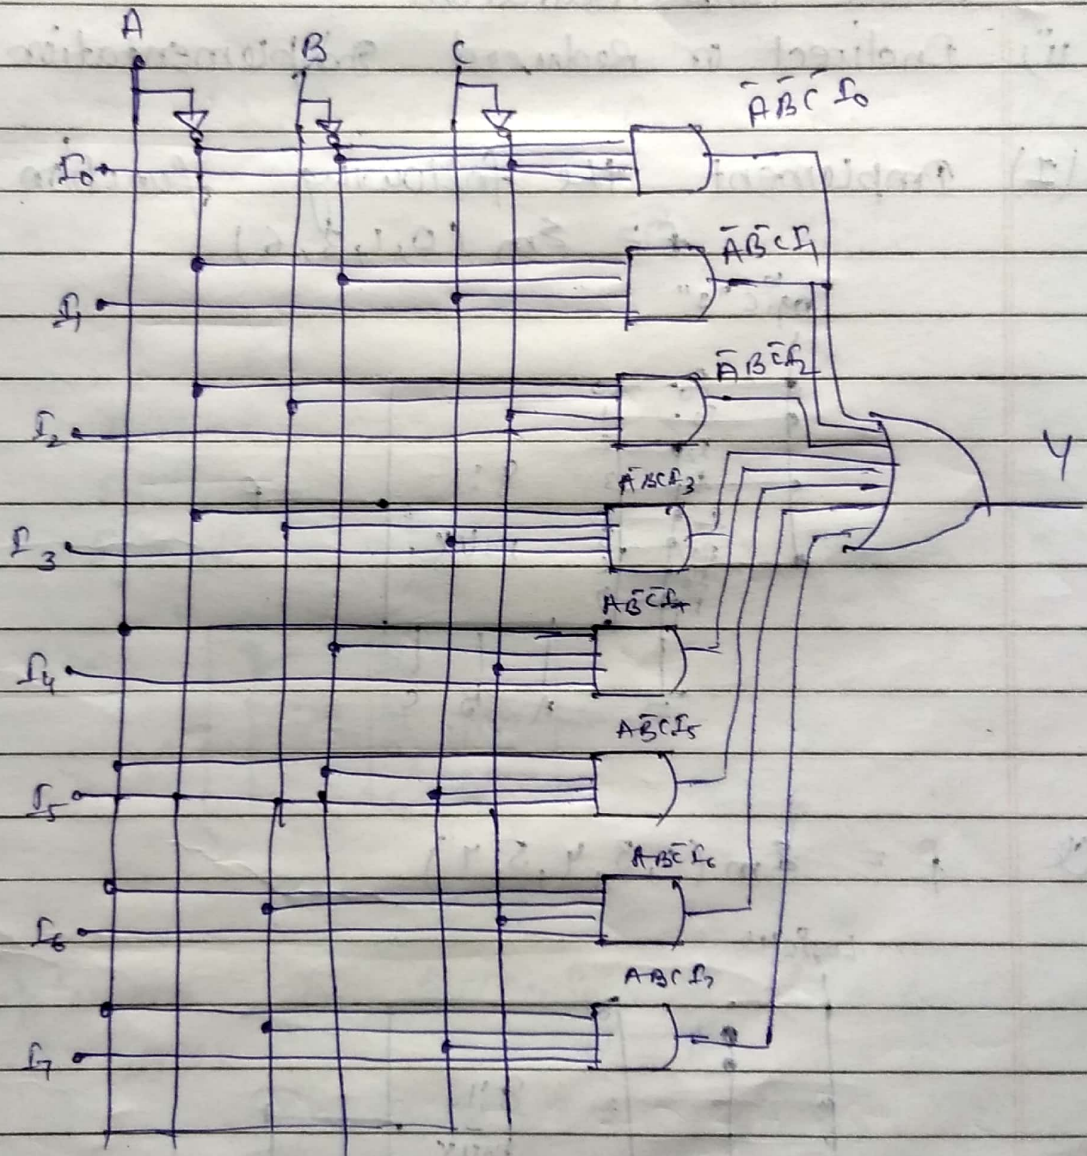 A B C
A̅ B̅ C̅ I₀
I₀
A̅ B̅ C I₁
I₁
A̅ B C̅ I₂
I₂
Y
A̅ B C I₃
I₃
A B̅ C̅ I₄
I₄
A B̅ C I₅
I₅
A B C̅ I₆
I₆
A B C I₇
I₇